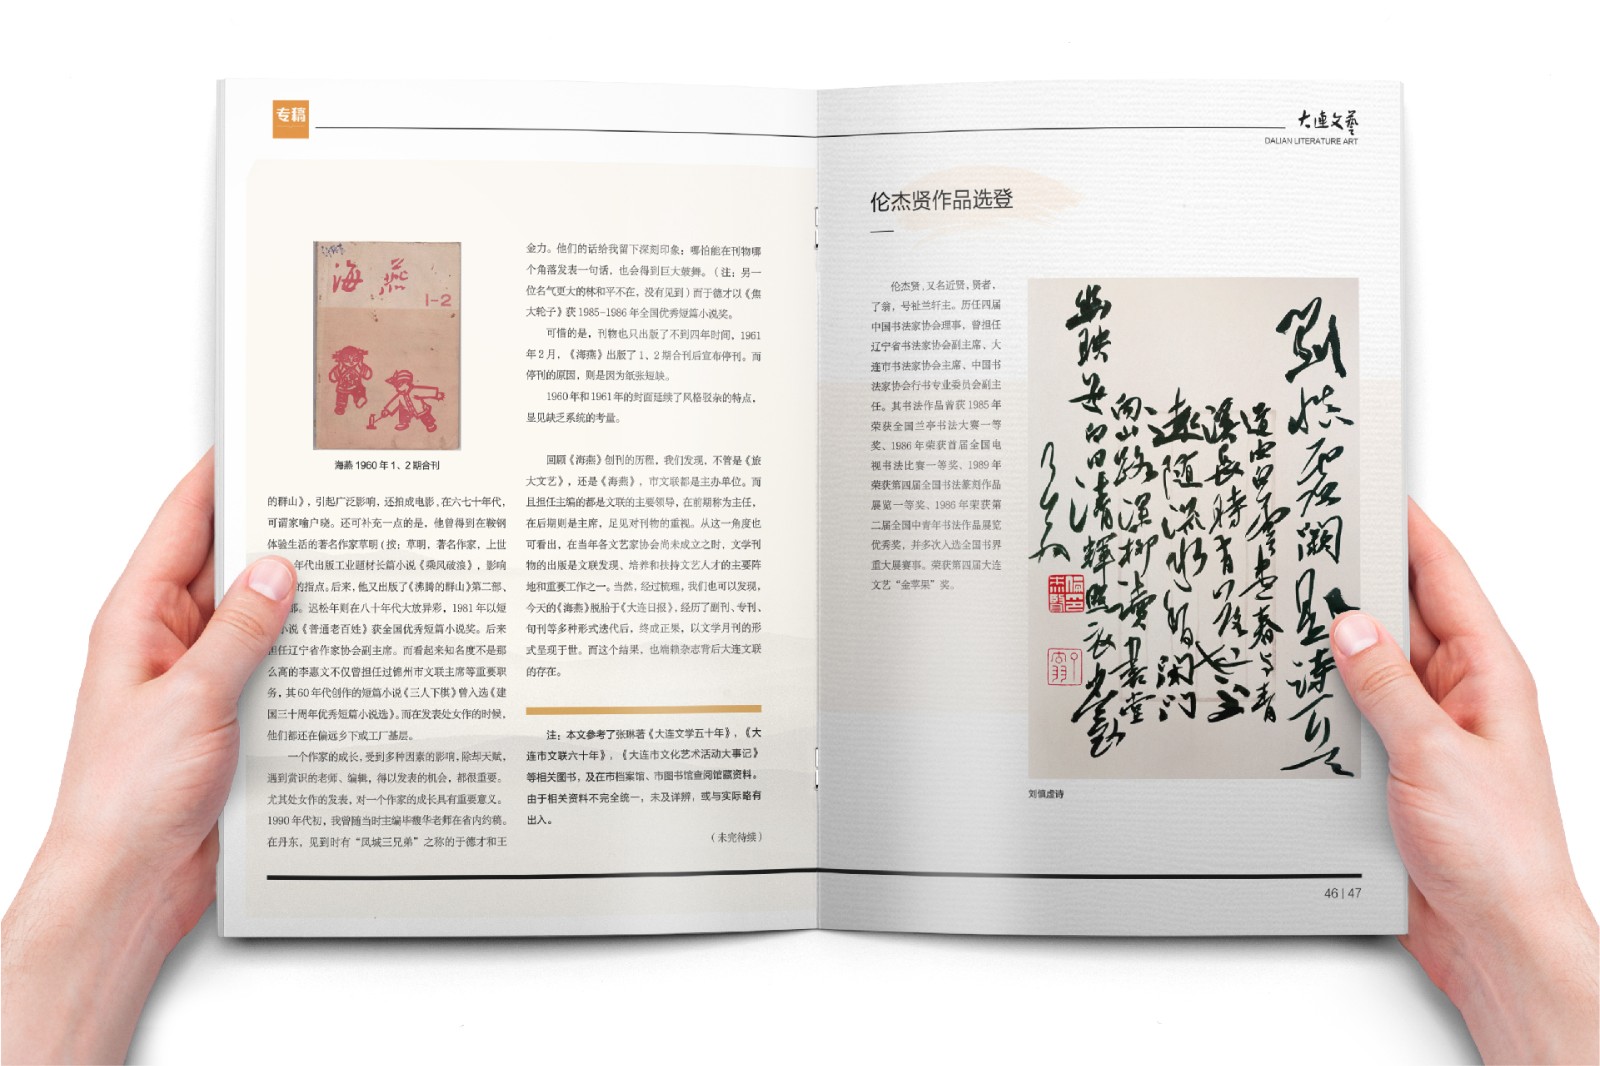 专稿
海燕
1-2
海燕 1960 年 1、2 期合刊
的群山》，引起广泛影响，还拍成电影，在六七十年代，
可谓家喻户晓。还可补充一点的是，他曾得到在鞍钢
体验生活的著名作家草明（按：草明，著名作家，上世
年代出版工业题材长篇小说《乘风破浪》，影响
的指点。后来，他又出版了《沸腾的群山》第二部、
部。迟松年则在八十年代大放异彩，1981 年以短
小说《普通老百姓》获全国优秀短篇小说奖。后来
担任辽宁省作家协会副主席。而看起来知名度不是那
么高的李惠文不仅曾担任过锦州市文联主席等重要职
务，其 60 年代创作的短篇小说《三人下棋》曾入选《建
国三十周年优秀短篇小说选》。而在发表处女作的时候，
他们都还在偏远乡下或工厂基层。
一个作家的成长，受到多种因素的影响，除却天赋，
遇到赏识的老师、编辑，得以发表的机会，都很重要。
尤其处女作的发表，对一个作家的成长具有重要意义。
1990 年代初，我曾随当时主编毕馥华老师在省内约稿。
在丹东，见到时有“凤城三兄弟”之称的于德才和王
金力。他们的话给我留下深刻印象：哪怕能在刊物哪
个角落发表一句话，也会得到巨大鼓舞。（注：另一
位名气更大的林和平不在，没有见到）而于德才以《焦
大轮子》获 1985-1986 年全国优秀短篇小说奖。
可惜的是，刊物也只出版了不到四年时间，1961
年 2 月，《海燕》出版了 1、2 期合刊后宣布停刊。而
停刊的原因，则是因为纸张短缺。
1960 年和 1961 年的封面延续了风格驳杂的特点，
显见缺乏系统的考量。
回顾《海燕》创刊的历程，我们发现，不管是《旅
大文艺》，还是《海燕》，市文联都是主办单位。而
且担任主编的都是文联的主要领导，在前期称为主任，
在后期则是主席，足见对刊物的重视。从这一角度也
可看出，在当年各文艺家协会尚未成立之时，文学刊
物的出版是文联发现、培养和扶持文艺人才的主要阵
地和重要工作之一。当然，经过梳理，我们也可以发现，
今天的《海燕》脱胎于《大连日报》，经历了副刊、专刊、
旬刊等多种形式迭代后，终成正果，以文学月刊的形
式呈现于世。而这个结果，也端赖杂志背后大连文联
的存在。
注：本文参考了张琳著《大连文学五十年》，《大
连市文联六十年》，《大连市文化艺术活动大事记》
等相关图书，及在市档案馆、市图书馆查阅馆藏资料。
由于相关资料不完全统一，未及详辨，或与实际略有
出入。
（未完待续）
大連文藝
DALIAN LITERATURE ART
伦杰贤作品选登
伦杰贤，又名近贤，贤者，
了翁，号祉兰轩主。历任四届
中国书法家协会理事，曾担任
辽宁省书法家协会副主席、大
连市书法家协会主席、中国书
法家协会行书专业委员会副主
任。其书法作品曾获 1985 年
荣获全国兰亭书法大赛一等
奖、1986 年荣获首届全国电
视书法比赛一等奖、1989 年
荣获第四届全国书法篆刻作品
展览一等奖、1986 年荣获第
二届全国中青年书法作品展览
优秀奖，并多次入选全国书界
重大展赛事。荣获第四届大连
文艺“金苹果”奖。
劉慎虛闕題詩一首
道由白雲盡春与青
溪長時有落花至
遠随流水香闲门
向山路深柳讀書堂
幽映每白日清輝照衣裳
刘慎虚诗
46 | 47